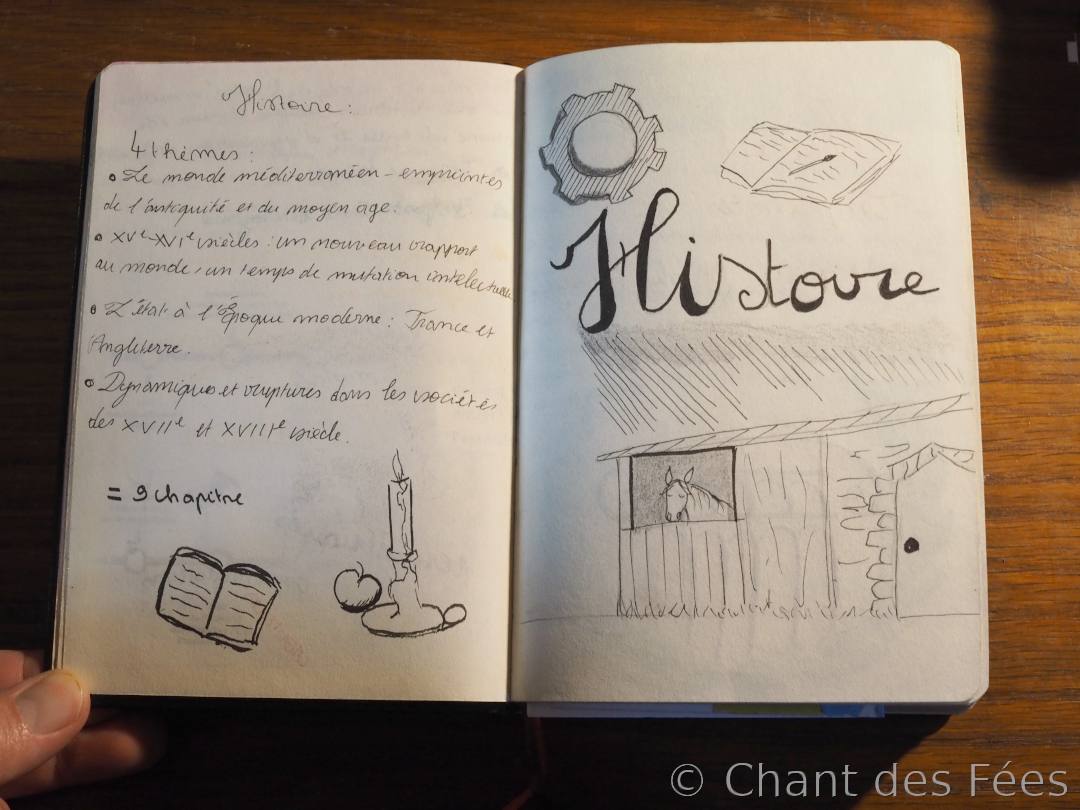 Histoire :
4 thèmes :
• Le monde méditerranéen - empreintes
de l'antiquité et du moyen age.
• XVe-XVIe siècles : un nouveau rapport
au monde, un temps de mutation intelectuelle
• L'état à l'époque moderne : France et
Angleterre.
• Dynamiques et ruptures dans les sociétés
des XVIIe et XVIIIe siècle.
= 9 chapitre
Histoire
© Chant des Fées